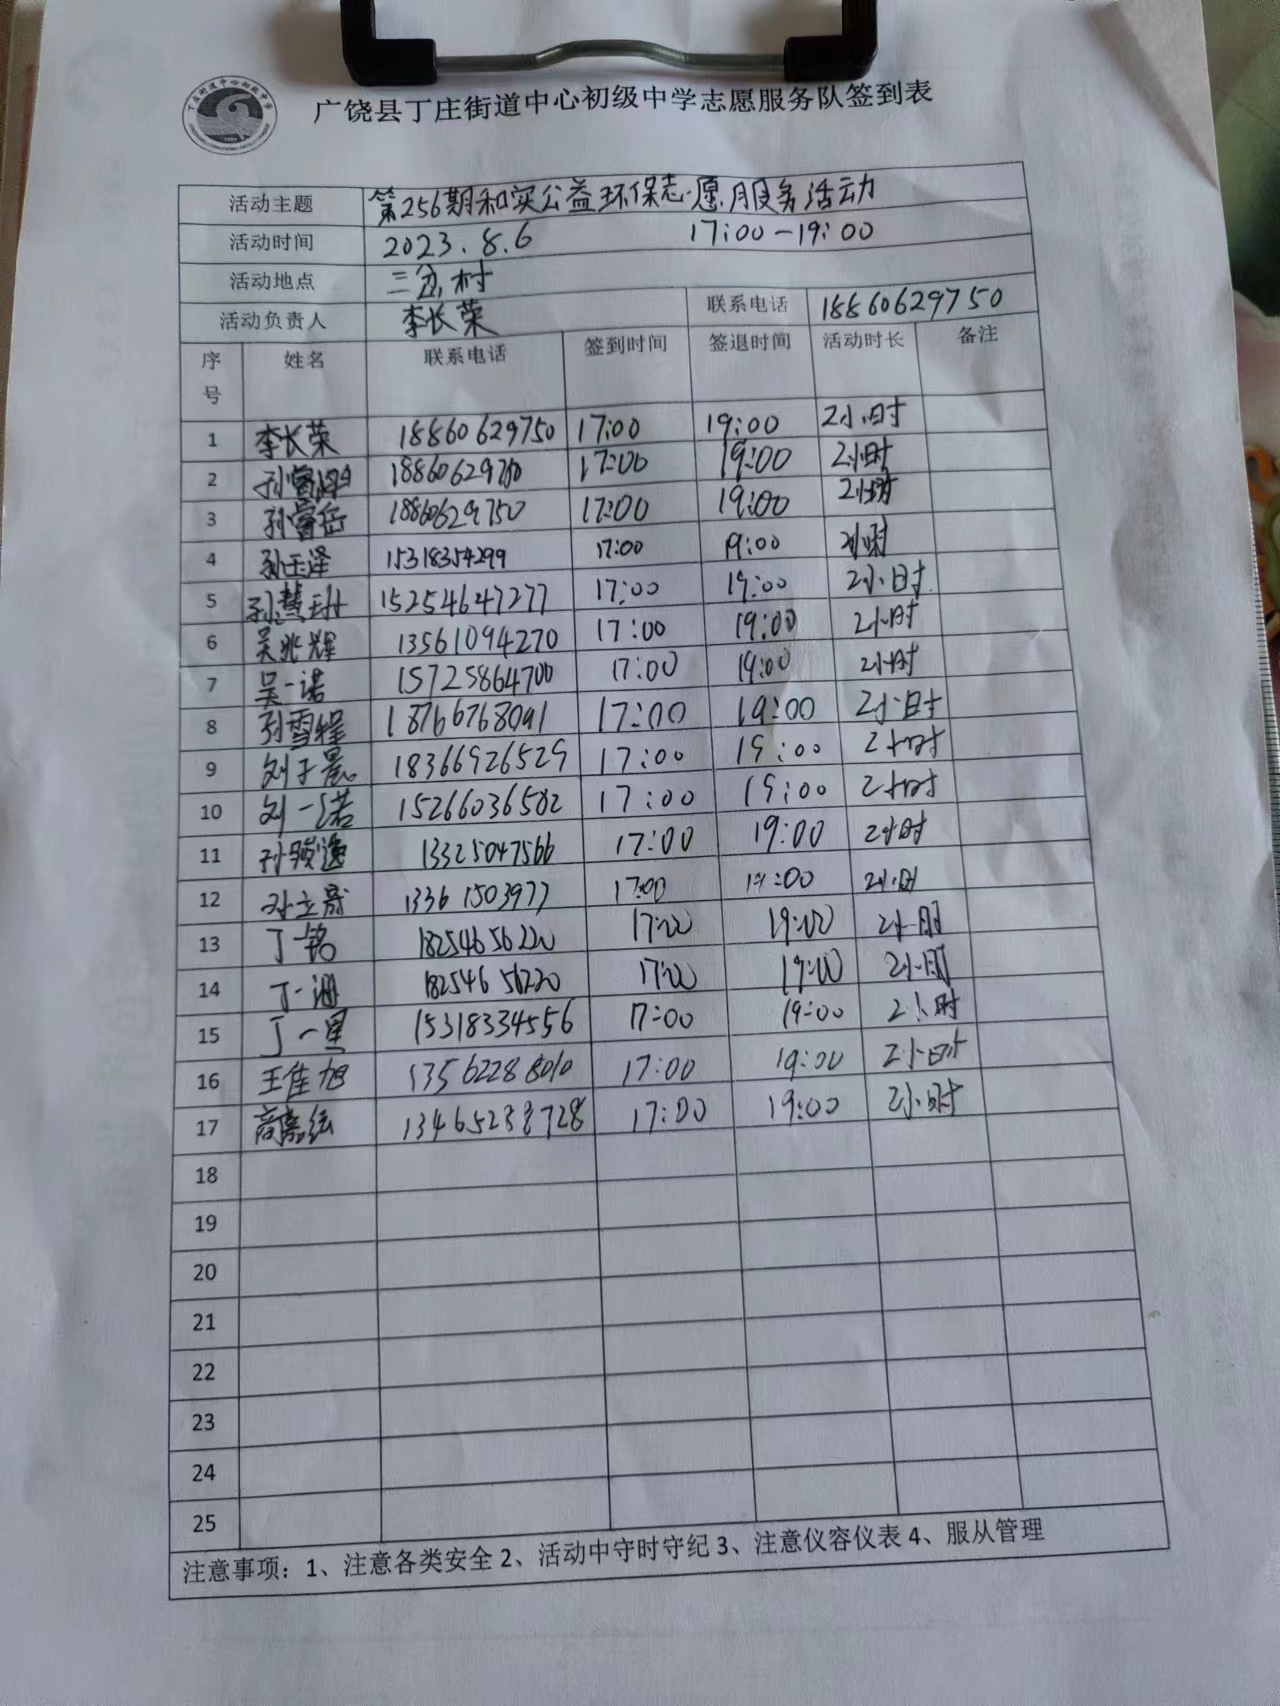 广饶县丁庄街道中心初级中学志愿服务队签到表
活动主题 第256期和实公益环保志愿服务活动
活动时间 2023.8.6 17:00-19:00
活动地点 三岔村
活动负责人 李长荣 联系电话 18860629750
序号 姓名 联系电话 签到时间 签退时间 活动时长 备注
1 李长荣 18860629750 17:00 19:00 2小时
2 18860629750 17:00 19:00 2小时
3 孙睿岳 18860629750 17:00 19:00 2小时
4 孙玉泽 15318354299 17:00 19:00 2小时
5 15254647277 17:00 19:00 2小时
6 吴兆辉 13561094270 17:00 19:00 2小时
7 吴一诺 15725864700 17:00 19:00 2小时
8 18766768091 17:00 19:00 2小时
9 刘子晨 18366926529 17:00 19:00 2小时
10 刘一诺 15266036582 17:00 19:00 2小时
11 孙骏逸 13325047566 17:00 19:00 2小时
12 13361503977 17:00 19:00 2小时
13 丁一铭 18254656220 17:00 19:00 2小时
14 18254656220 17:00 19:00 2小时
15 丁一里 15318334556 17:00 19:00 2小时
16 王佳旭 13562288010 17:00 19:00 2小时
17 13465288728 17:00 19:00 2小时
18
19
20
21
22
23
24
25
注意事项：1、注意各类安全 2、活动中守时守纪 3、注意仪容仪表 4、服从管理